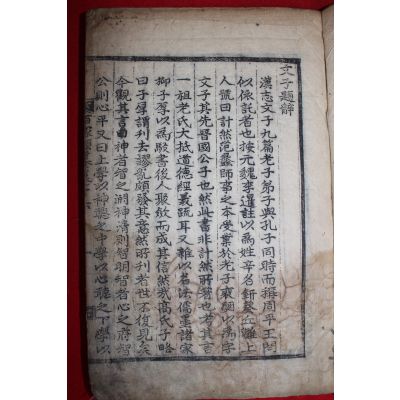 文子題辭
漢志文子九篇老子弟子與孔子同時而稱周平王問
似依託者也按元魏李暹註以爲姓辛名鈃葵丘濮上
人號曰計然范蠡師事之本受業於老子以爲字
文子其先晉國公子也然此書非計然所著也者其言
一祖老氏大抵道德經義疏耳又雜以名法儒墨諸家
柳子厚以爲駁書後人聚斂而成其信然哉高氏子略
曰子厚謂刊去謬亂頗發其意然所刊者世不復見矣
今觀其言曰神者智之淵神清則智明智者心之府智
公則心平又曰上學以神聽之中學以心聽之下學以